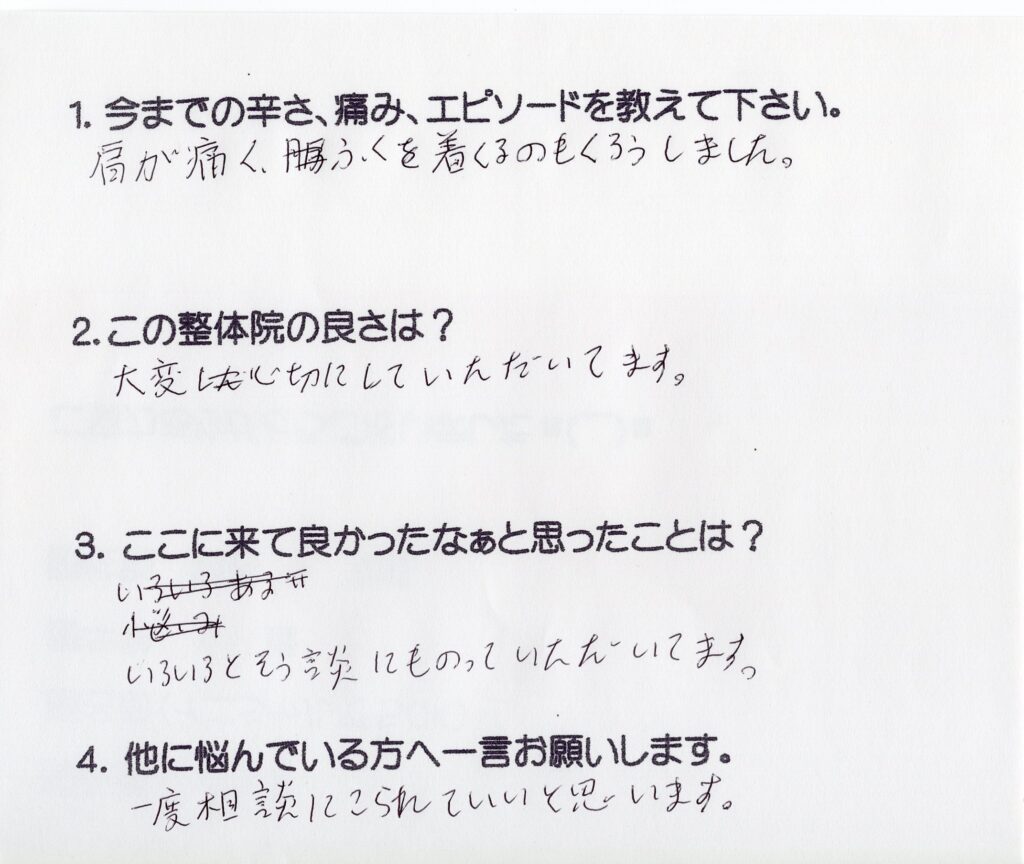 1. 今までの辛さ、痛み、エピソードを教えて下さい。
肩が痛く、ふくを着くるのもくろうしました。
2. この整体院の良さは？
大変心切にしていただいてます。
3. ここに来て良かったなぁと思ったことは？
いろいろある
悩み
いろいろとそう談にものっていただいてます。
4. 他に悩んでいる方へ一言お願いします。
一度相談にこられていいと思います。